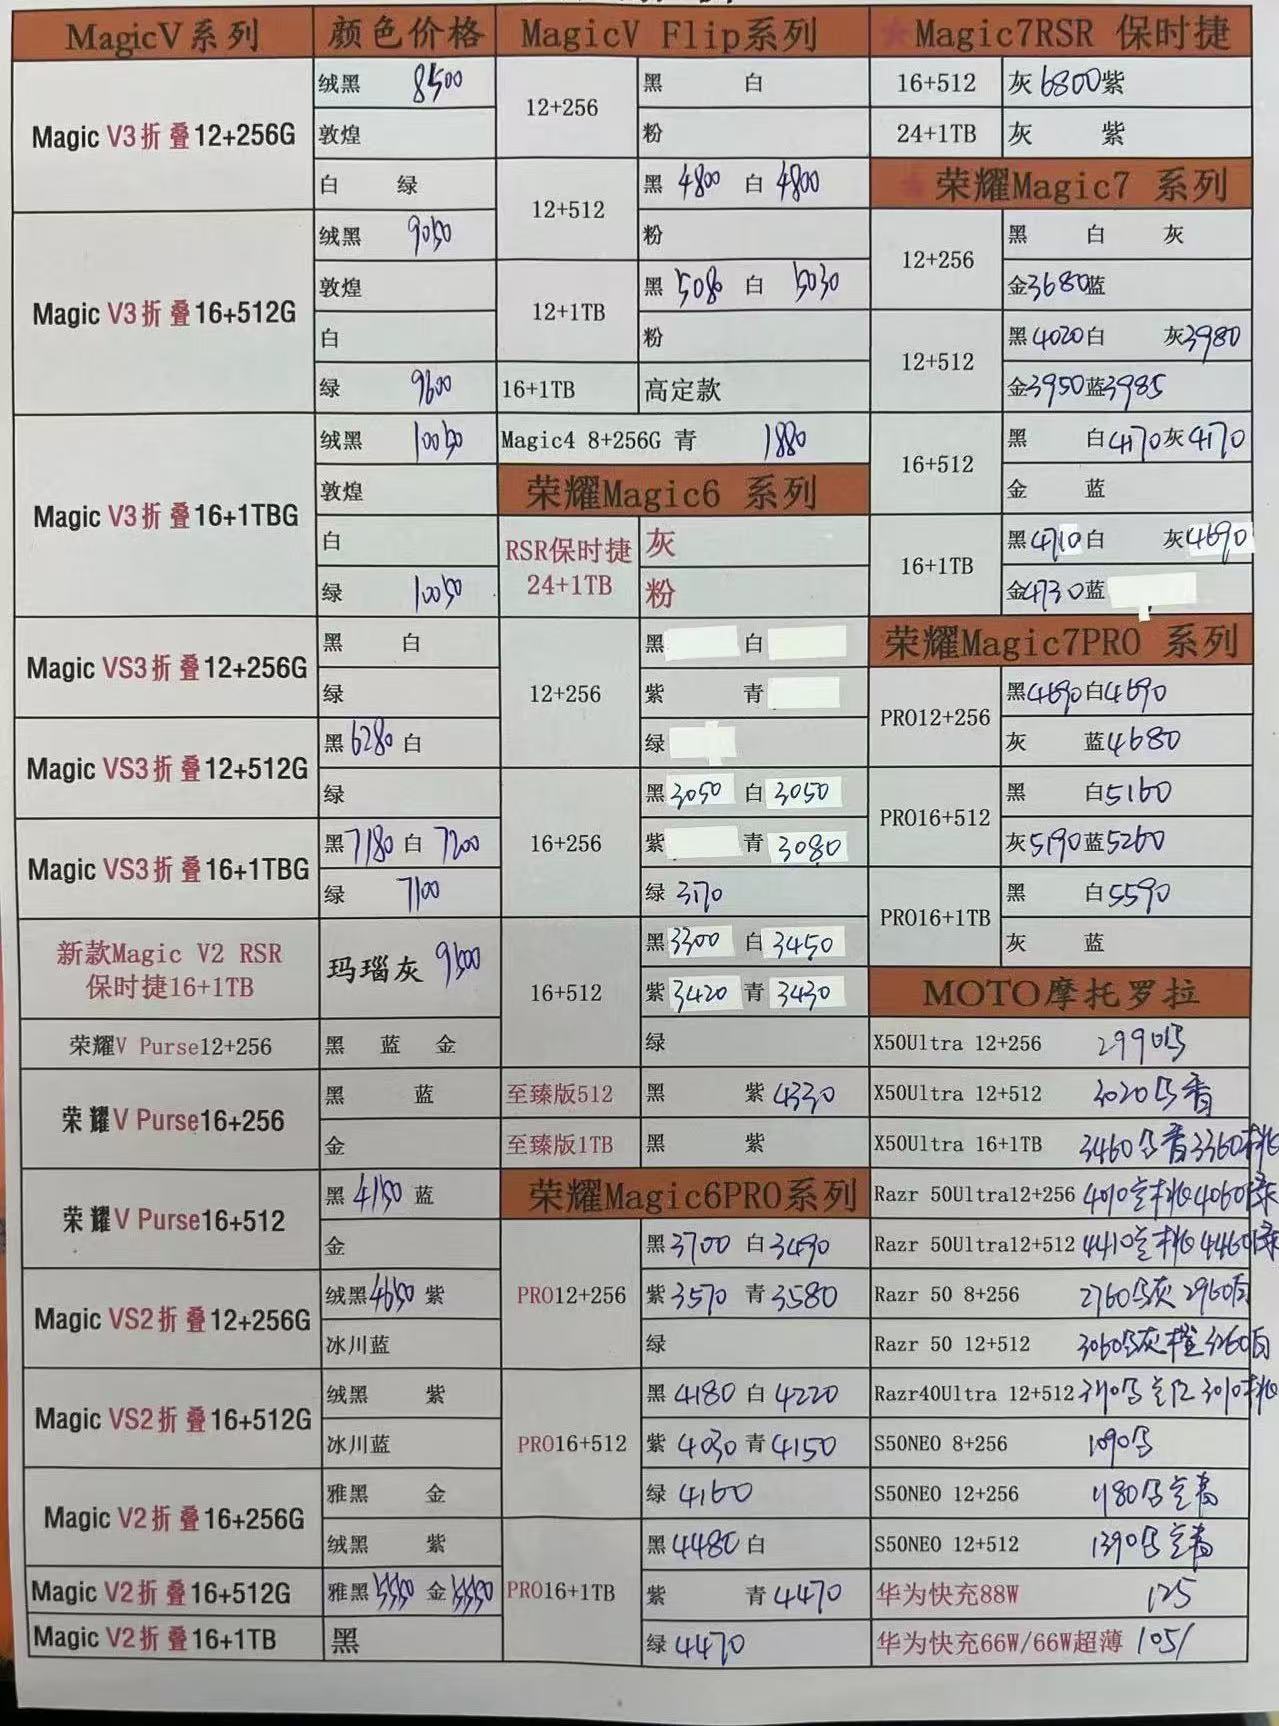 MagicV系列 颜色价格
Magic V3折叠12+256G
绒黑 8500
敦煌
白 绿
Magic V3折叠16+512G
绒黑 9050
敦煌
白
绿 9600
Magic V3折叠16+1TBG
绒黑 10050
敦煌
白
绿 10050
Magic VS3折叠12+256G
黑 白
绿
Magic VS3折叠12+512G
黑6280 白
绿
Magic VS3折叠16+1TBG
黑7180 白 7200
绿 7100
新款Magic V2 RSR
保时捷16+1TB
玛瑙灰 9500
荣耀V Purse12+256
黑 蓝 金
荣耀V Purse16+256
黑 蓝
金
荣耀V Purse16+512
黑 4150 蓝
金
Magic VS2折叠12+256G
绒黑4650 紫
冰川蓝
Magic VS2折叠16+512G
绒黑 紫
冰川蓝
Magic V2折叠16+256G
雅黑 金
绒黑 紫
Magic V2折叠16+512G
雅黑5550 金5550
Magic V2折叠16+1TB
黑
MagicV Flip系列
12+256
黑 白
粉
12+512
黑 4800 白 4800
粉
12+1TB
黑 5080 白 5030
粉
16+1TB 高定款
Magic4 8+256G 青 1880
荣耀Magic6 系列
RSR保时捷
24+1TB
灰
粉
12+256
黑 白
紫 青
绿
16+256
黑3050 白3050
紫 青 3080
绿 3170
16+512
黑3300 白3450
紫3420 青3430
绿
至臻版512 黑 紫4330
至臻版1TB 黑 紫
荣耀Magic6PRO系列
PRO12+256
黑3700 白3490
紫3570 青3580
绿
PRO16+512
黑 4180 白 4220
紫 4030 青 4150
绿 4160
PRO16+1TB
黑4480 白
紫 青4470
绿4470
Magic7RSR 保时捷
16+512 灰 6800紫
24+1TB 灰 紫
荣耀Magic7 系列
12+256
黑 白 灰
金3680蓝
12+512
黑4020白 灰3980
金3950蓝3985
16+512
黑 白4170灰4170
金 蓝
16+1TB
黑4710白 灰4690
金4730蓝
荣耀Magic7PRO 系列
PRO12+256
黑4690白4690
灰 蓝4680
PRO16+512
黑 白5160
灰5190蓝5260
PRO16+1TB
黑 白5590
灰 蓝
MOTO摩托罗拉
X50Ultra 12+256 2990
X50Ultra 12+512 3020
X50Ultra 16+1TB 3460 3360桃
Razr 50Ultra12+256 4010 桃4060绿
Razr 50Ultra12+512 4410 桃4460绿
Razr 50 8+256 2760 灰 2960白
Razr 50 12+512 3060 灰橙3260白
Razr40Ultra 12+512 3010桃
S50NEO 8+256 1090
S50NEO 12+256 1180
S50NEO 12+512 1390
华为快充88W 125
华为快充66W/66W超薄 105/